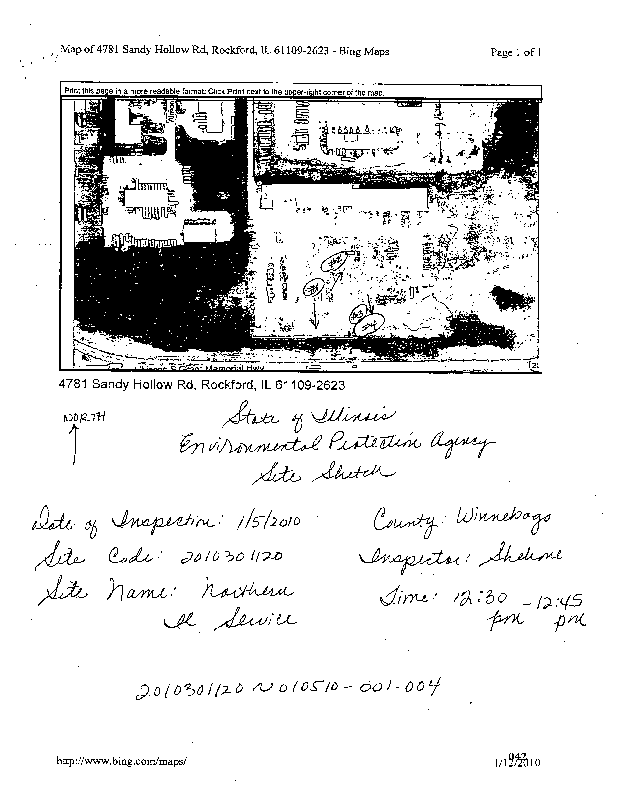 Map of 4781 Sandy Hollow Rd, Rockford, IL 61109-2623 - Bing Maps Page 1 of 1
Print this page in a more readable format: Click Print next to the upper-right corner of the map.
Memorial Hwy
4781 Sandy Hollow Rd, Rockford, IL 61109-2623
NORTH
State of Illinois
Environmental Protection Agency
Site Sketch
Date of Inspection: 1/5/2010 County: Winnebago
Site Code: 2010301120 Inspector: Shelone
Site Name: Northern Time: 12:30 - 12:45
Il Service pm pm
2010301120 ~ 010510 - 001-004
http://www.bing.com/maps/ 1/12/2010
042